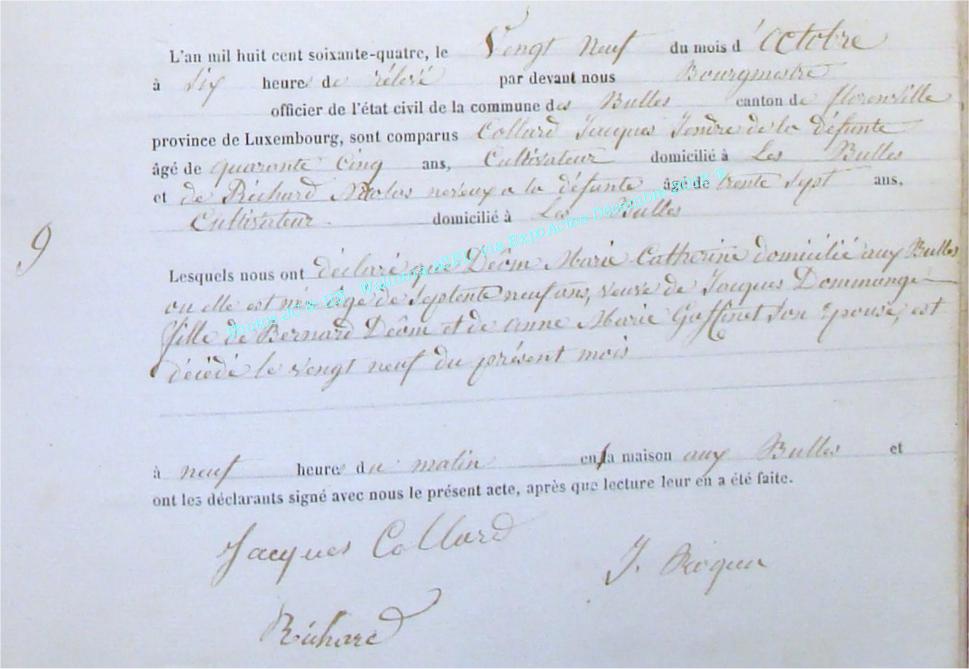 L'an mil huit cent soixante-quatre, le Vengt Neuf du mois d'Octobre
à Six heures de rélevé par devant nous Bourgmestre
officier de l'état civil de la commune des Bulles canton de florenville
province de Luxembourg, sont comparus Collard Jacques Jendre de la défunte
âgé de quarante Cinq ans, Cultivateur domicilié à Les Bulles
et de Richard Nicolas neveux a la défunte âgé de trente Sept ans,
Cultivateur domicilié à Les Bulles
9
Lesquels nous ont déclaré que Déôm Marie Catherine domicilié aux Bulles
ou elle est née age de Septente neuf ans, veuve de Jacques Dommange
fille de Bernard Déôm et de anne Marie Goffinet Son Epouse, est
décédé le vengt neuf du présent mois
à neuf heures du matin en sa maison aux Bulles et
ont les déclarants signé avec nous le présent acte, après que lecture leur en a été faite.
Jacques Collard
J.
Richard